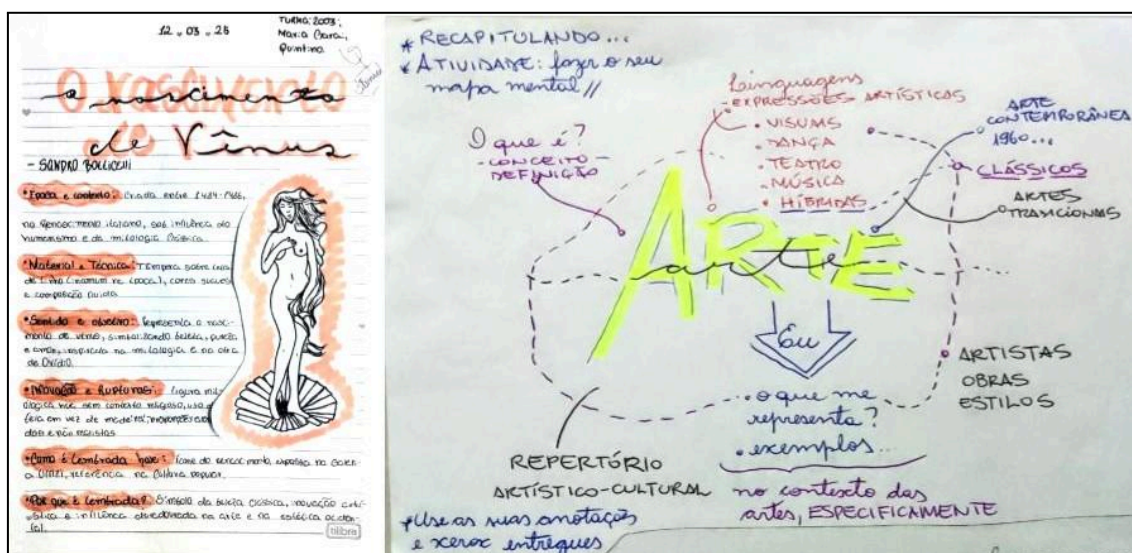 12-03-25
TURMA: 2003;
Maria Clara,
Quintino.
O nascimento
o nascimento
de Vênus
- SANDRO BOTICELLI
• Época e contexto: Criada entre 1484-1486,
no Renascimento italiano, sob influência do
humanismo e da mitologia clássica.
• Material e Técnica: Têmpera sobre
de linho (incomum na época), cores suaves
e composição fluida
• Sentido e objetivo: Representa o nasci-
mento de Vênus, simbolizando beleza, pureza
e amor, inspirado na mitologia e na obra
de Ovídio.
• Inovação e Rupturas: Figura mi-
ológica nua sem contexto religioso, uso
tela em vez de madeira,
e não realistas
• Como é lembrada hoje: Ícone do renascimento, exposta na Galeri-
a Uffizi, referência na cultura popular.
• Por que é lembrada?: Símbolo da beleza clássica, inovação artí-
stica e influência duradoura na arte e na estética ociden-
tal.
tilibra
* RECAPITULANDO...
* ATIVIDADE: fazer o seu
mapa mental //
O que é?
- CONCEITO -
DEFINIÇÃO
Linguagens
- EXPRESSÕES ARTÍSTICAS
• VISUAIS
• DANÇA
• TEATRO
• MÚSICA
• HÍBRIDAS
ARTE
CONTEMPORÂNEA
1960...
CLÁSSICOS
ARTES
TRADICIONAIS
ARTE
arte
Eu
• o que me
representa?
• exemplos...
no contexto das
artes, ESPECIFICAMENTE
ARTISTAS
OBRAS
ESTILOS
REPERTÓRIO
ARTÍSTICO-CULTURAL
* Use as suas anotações
e xerox entregues